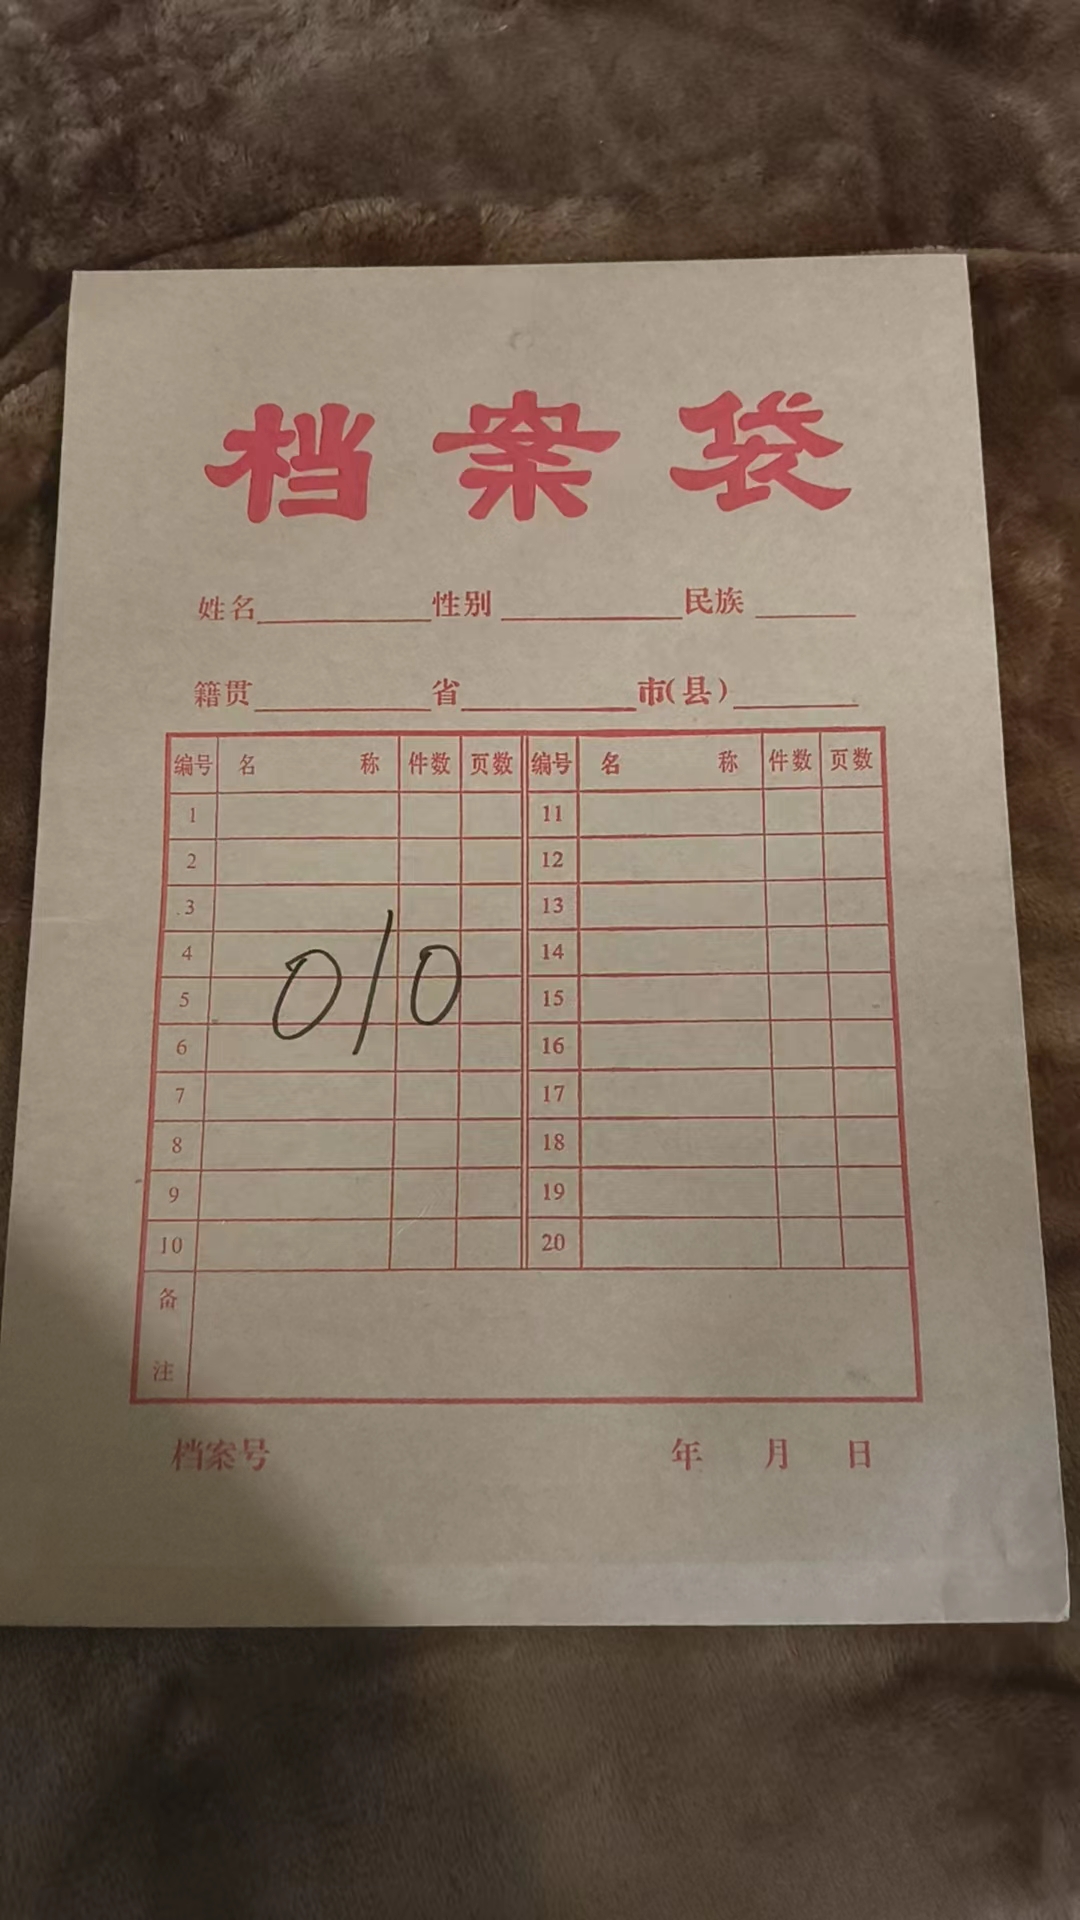 档案袋
姓名 性别 民族
籍贯 省 市(县)
编号 名称 件数 页数 编号 名称 件数 页数
1 11
2 12
3 13
4 14
5 15
010
6 16
7 17
8 18
9 19
10 20
备注
档案号 年 月 日